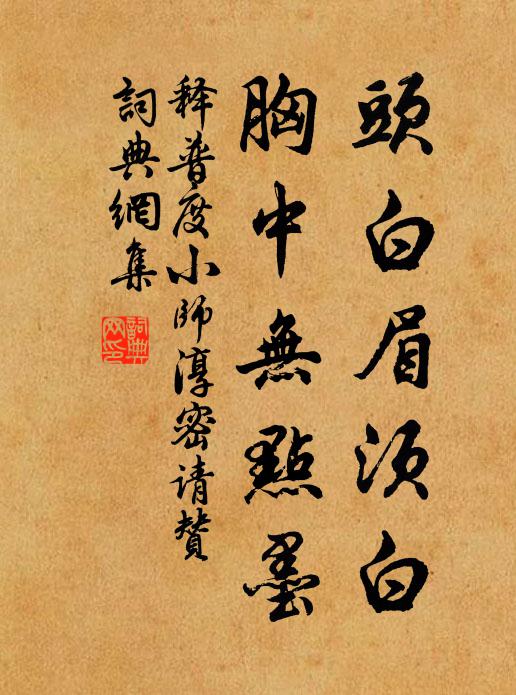 頭白眉須白
胸中無點墨
释普度小师淳密请赞
詞典網集
詞典網印